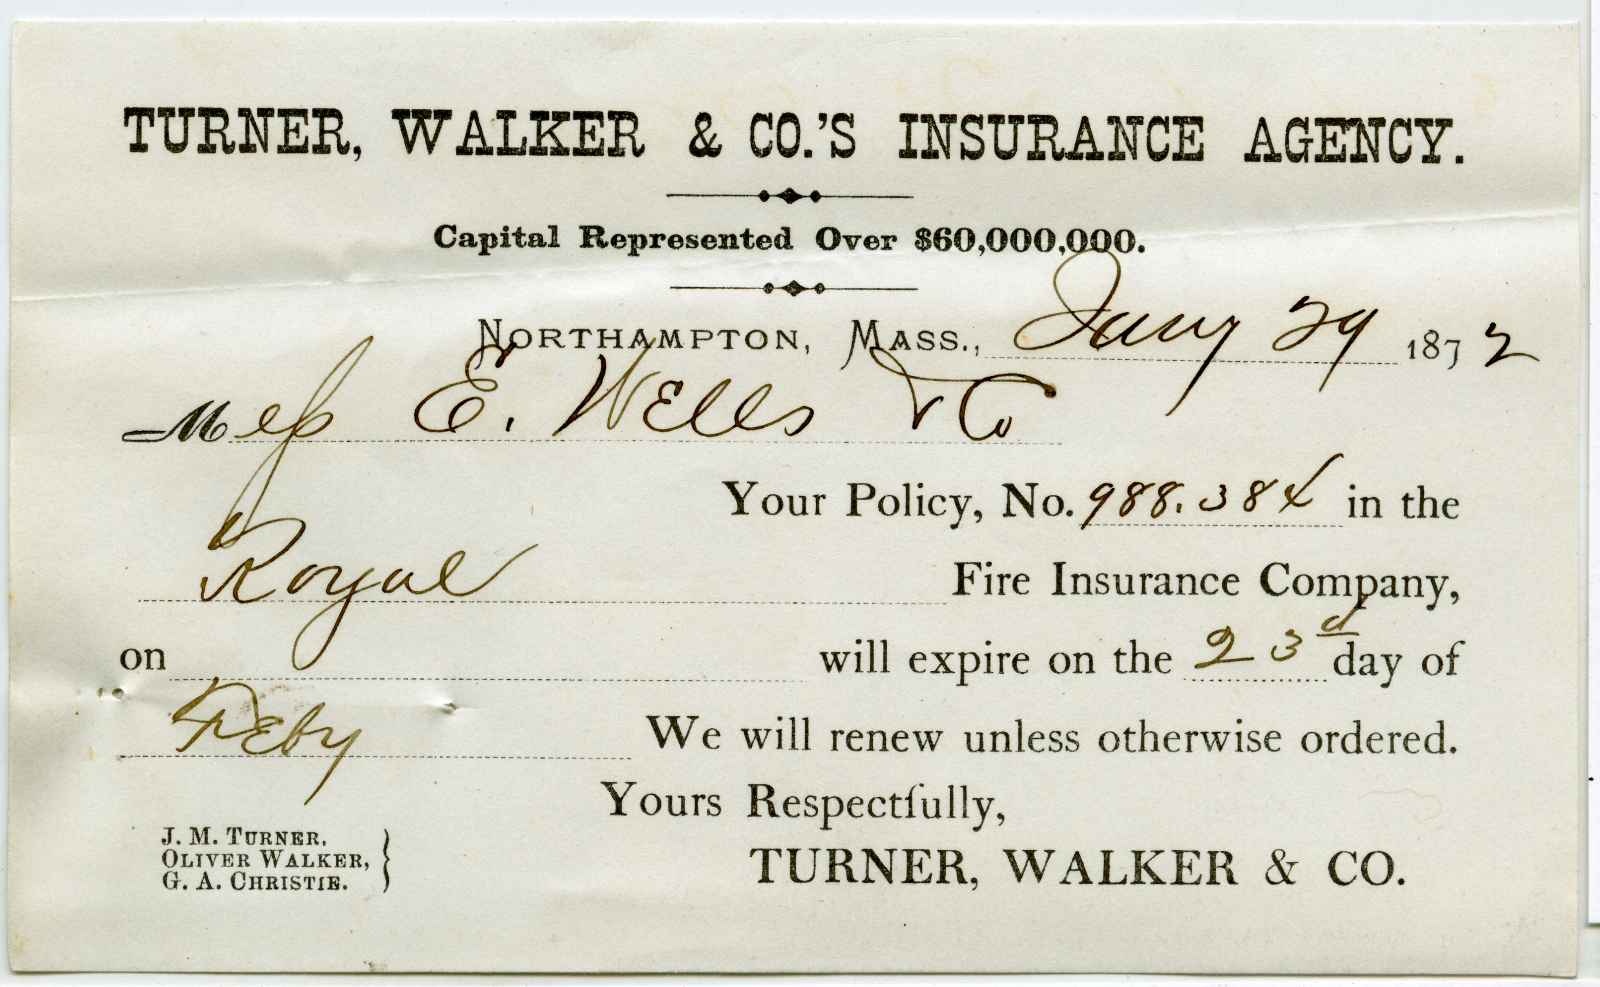 TURNER, WALKER & CO.'S INSURANCE AGENCY.
Capital Represented Over $60,000,000.
NORTHAMPTON, MASS., Jany 29 1872
Mess E. Wells & Co
Your Policy, No. 988.384 in the
Royal Fire Insurance Company,
on will expire on the 23d day of
Feby We will renew unless otherwise ordered.
Yours Respectfully,
TURNER, WALKER & CO.
J. M. TURNER,
OLIVER WALKER,
G. A. CHRISTIE.